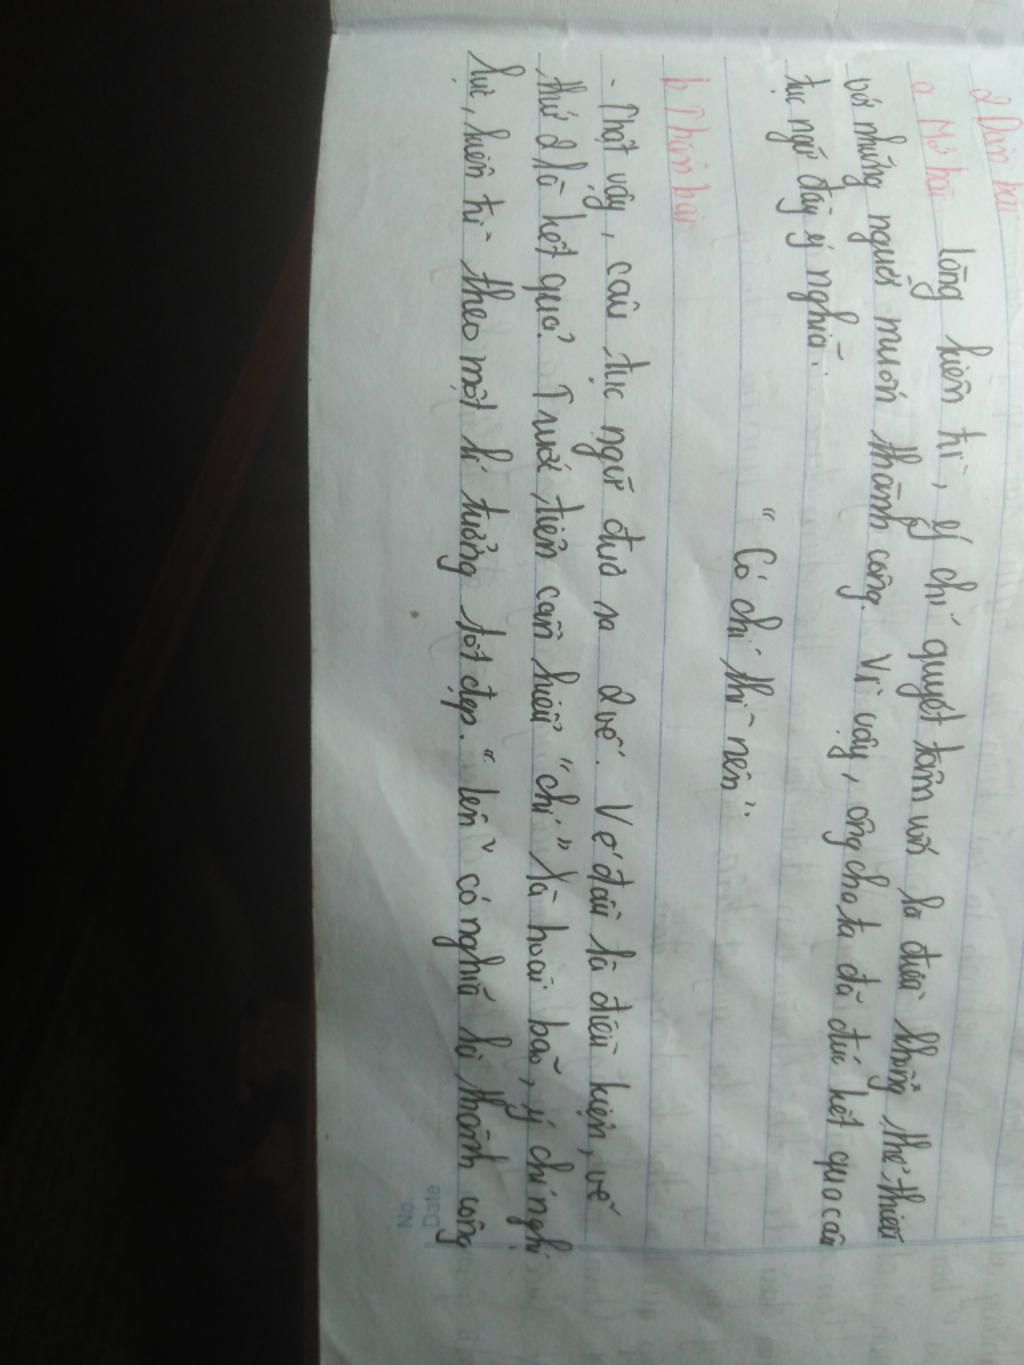 2 Dàn bài
a Mở bài
Lòng kiên trì, ý chí quyết tâm luôn là điều không thể thiếu
với những người muốn thành công. Vì vậy, ông cha ta đã đúc kết qua câu
tục ngữ đầy ý nghĩa:
"Có chí thì nên".
b Thân bài
- Thật vậy, câu tục ngữ đưa ra 2 vế. Vế đầu là điều kiện, vế
thứ 2 là kết quả. Trước tiên cần hiểu "chí" là hoài bão, ý chí nghị
lực, kiên trì theo một lí tưởng tốt đẹp. "Lên" có nghĩa là thành công
No.
Date